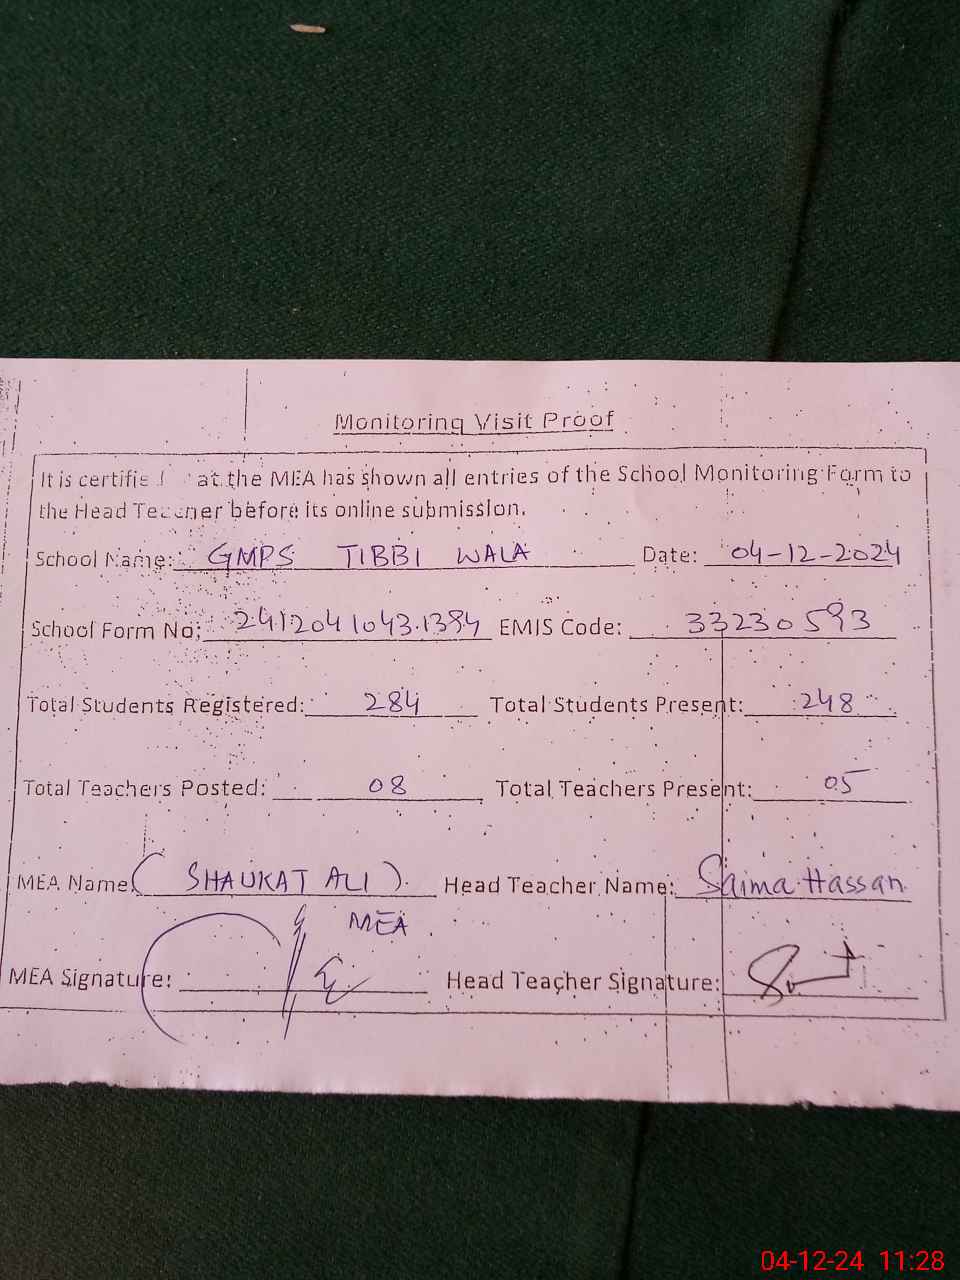 Monitoring Visit Proof
It is certifie at the MEA has shown all entries of the School Monitoring Form to
the Head Teacher before its online submission.
School Name: GMPS TIBBI WALA Date: 04-12-2024
School Form No: 2412041043.1384 EMIS Code: 33230593
Total Students Registered: 284 Total Students Present: 248
Total Teachers Posted: 08 Total Teachers Present: 05
MEA Name: (SHAUKAT ALI) Head Teacher Name: Saima Hassan
MEA
MEA Signature: Head Teacher Signature:
04-12-24 11:28